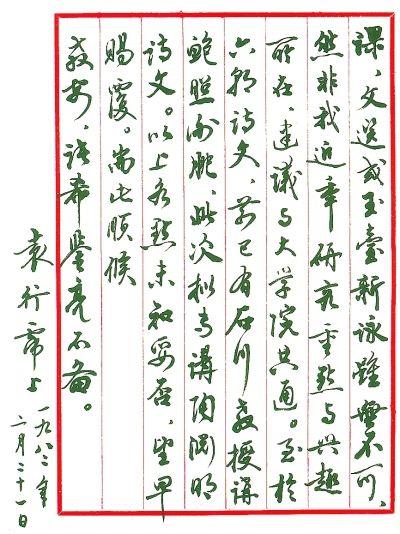 課，文選或玉臺新詠雖無不可，
然非我近年研究重點与興趣
所在，建議与大学院共通。至於
六朝诗文，前已有石川教授講
鲍照谢朓，此次拟专講陶渊明
诗文。以上各點未知妥否，望早
賜覆。耑此順候
教安，諸希鉴亮不备。
袁行霈上
一九八二年
二月二十一日